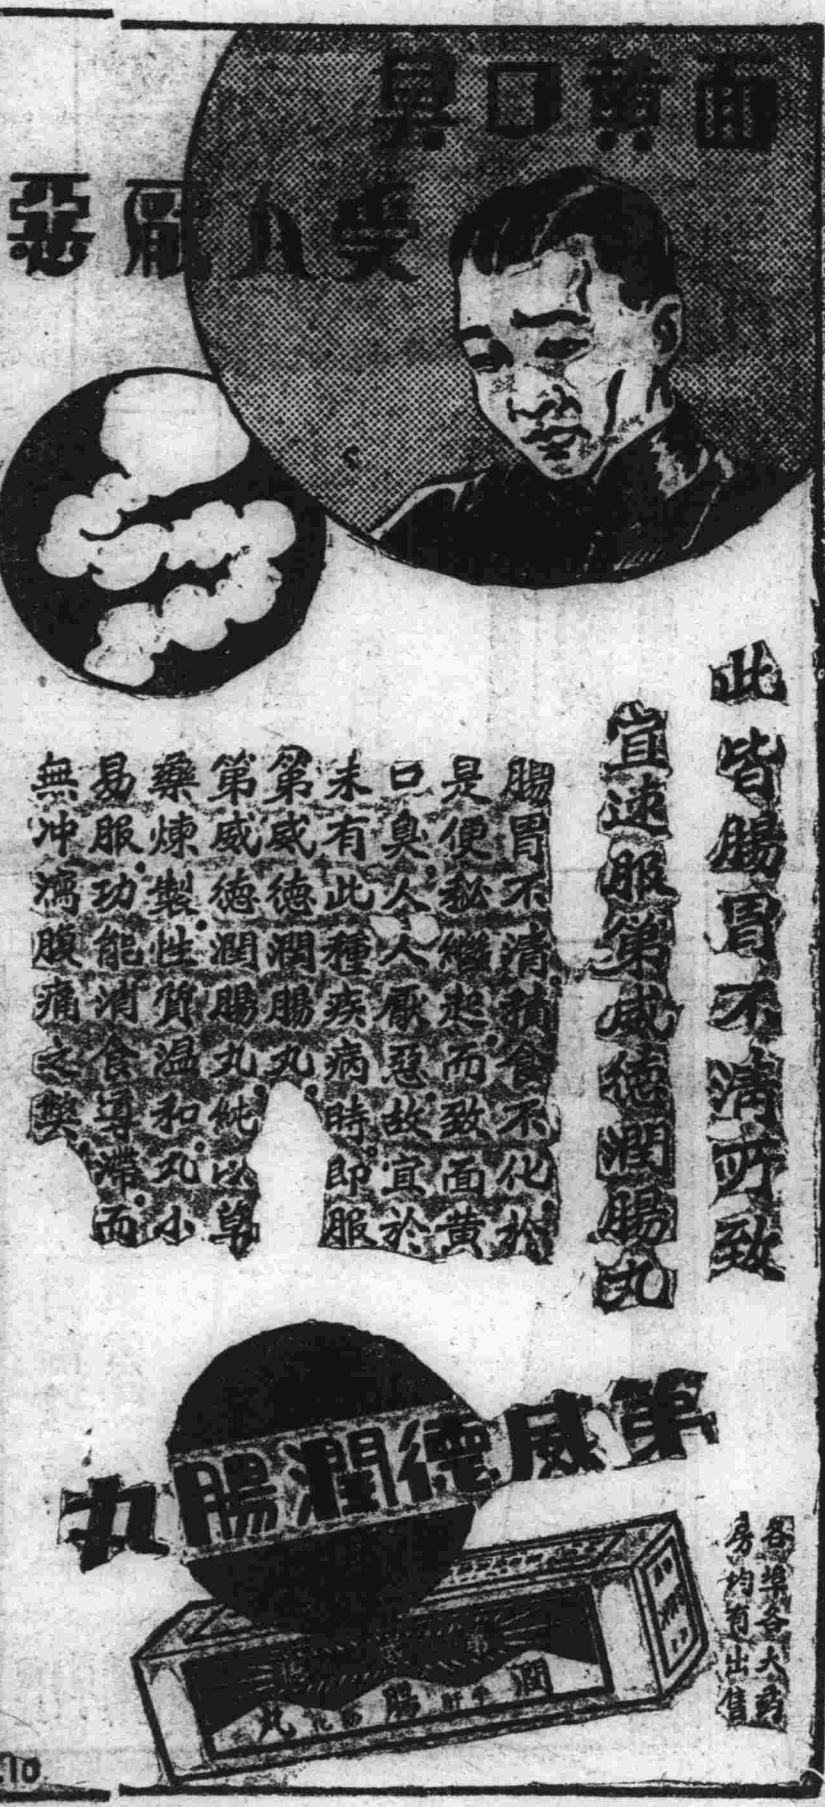 面黄口臭
受人厭惡
此皆腸胃不清所致
宜速服第威德潤腸丸
腸胃不清積食不化於
是便秘繼起而致面黄
口臭人人厭惡故宜於
未有此種疾病時即服
第威德潤腸丸
第威德潤腸丸純以草
藥煉製性質温和丸小
易服功能消食導滯而
無冲瀉腹痛之弊
第威德潤腸丸
各埠各大藥
房均有出售
潤腸丸
10